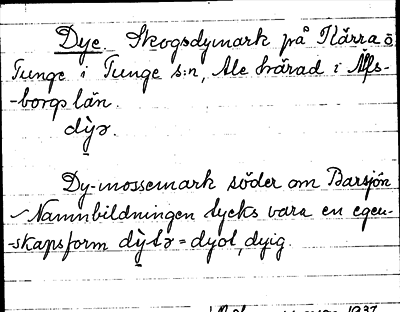 Dye. Skogsdymark på Kärra ö
Tunge i Tunge s:n, Ale härad i Älfs-
-borgs län.
dỳə.
Dy-mossemark söder om Barsjön
Namnbildningen tycks vara en egen-
-skapsform dỳtə = dyot, dyig.
1937